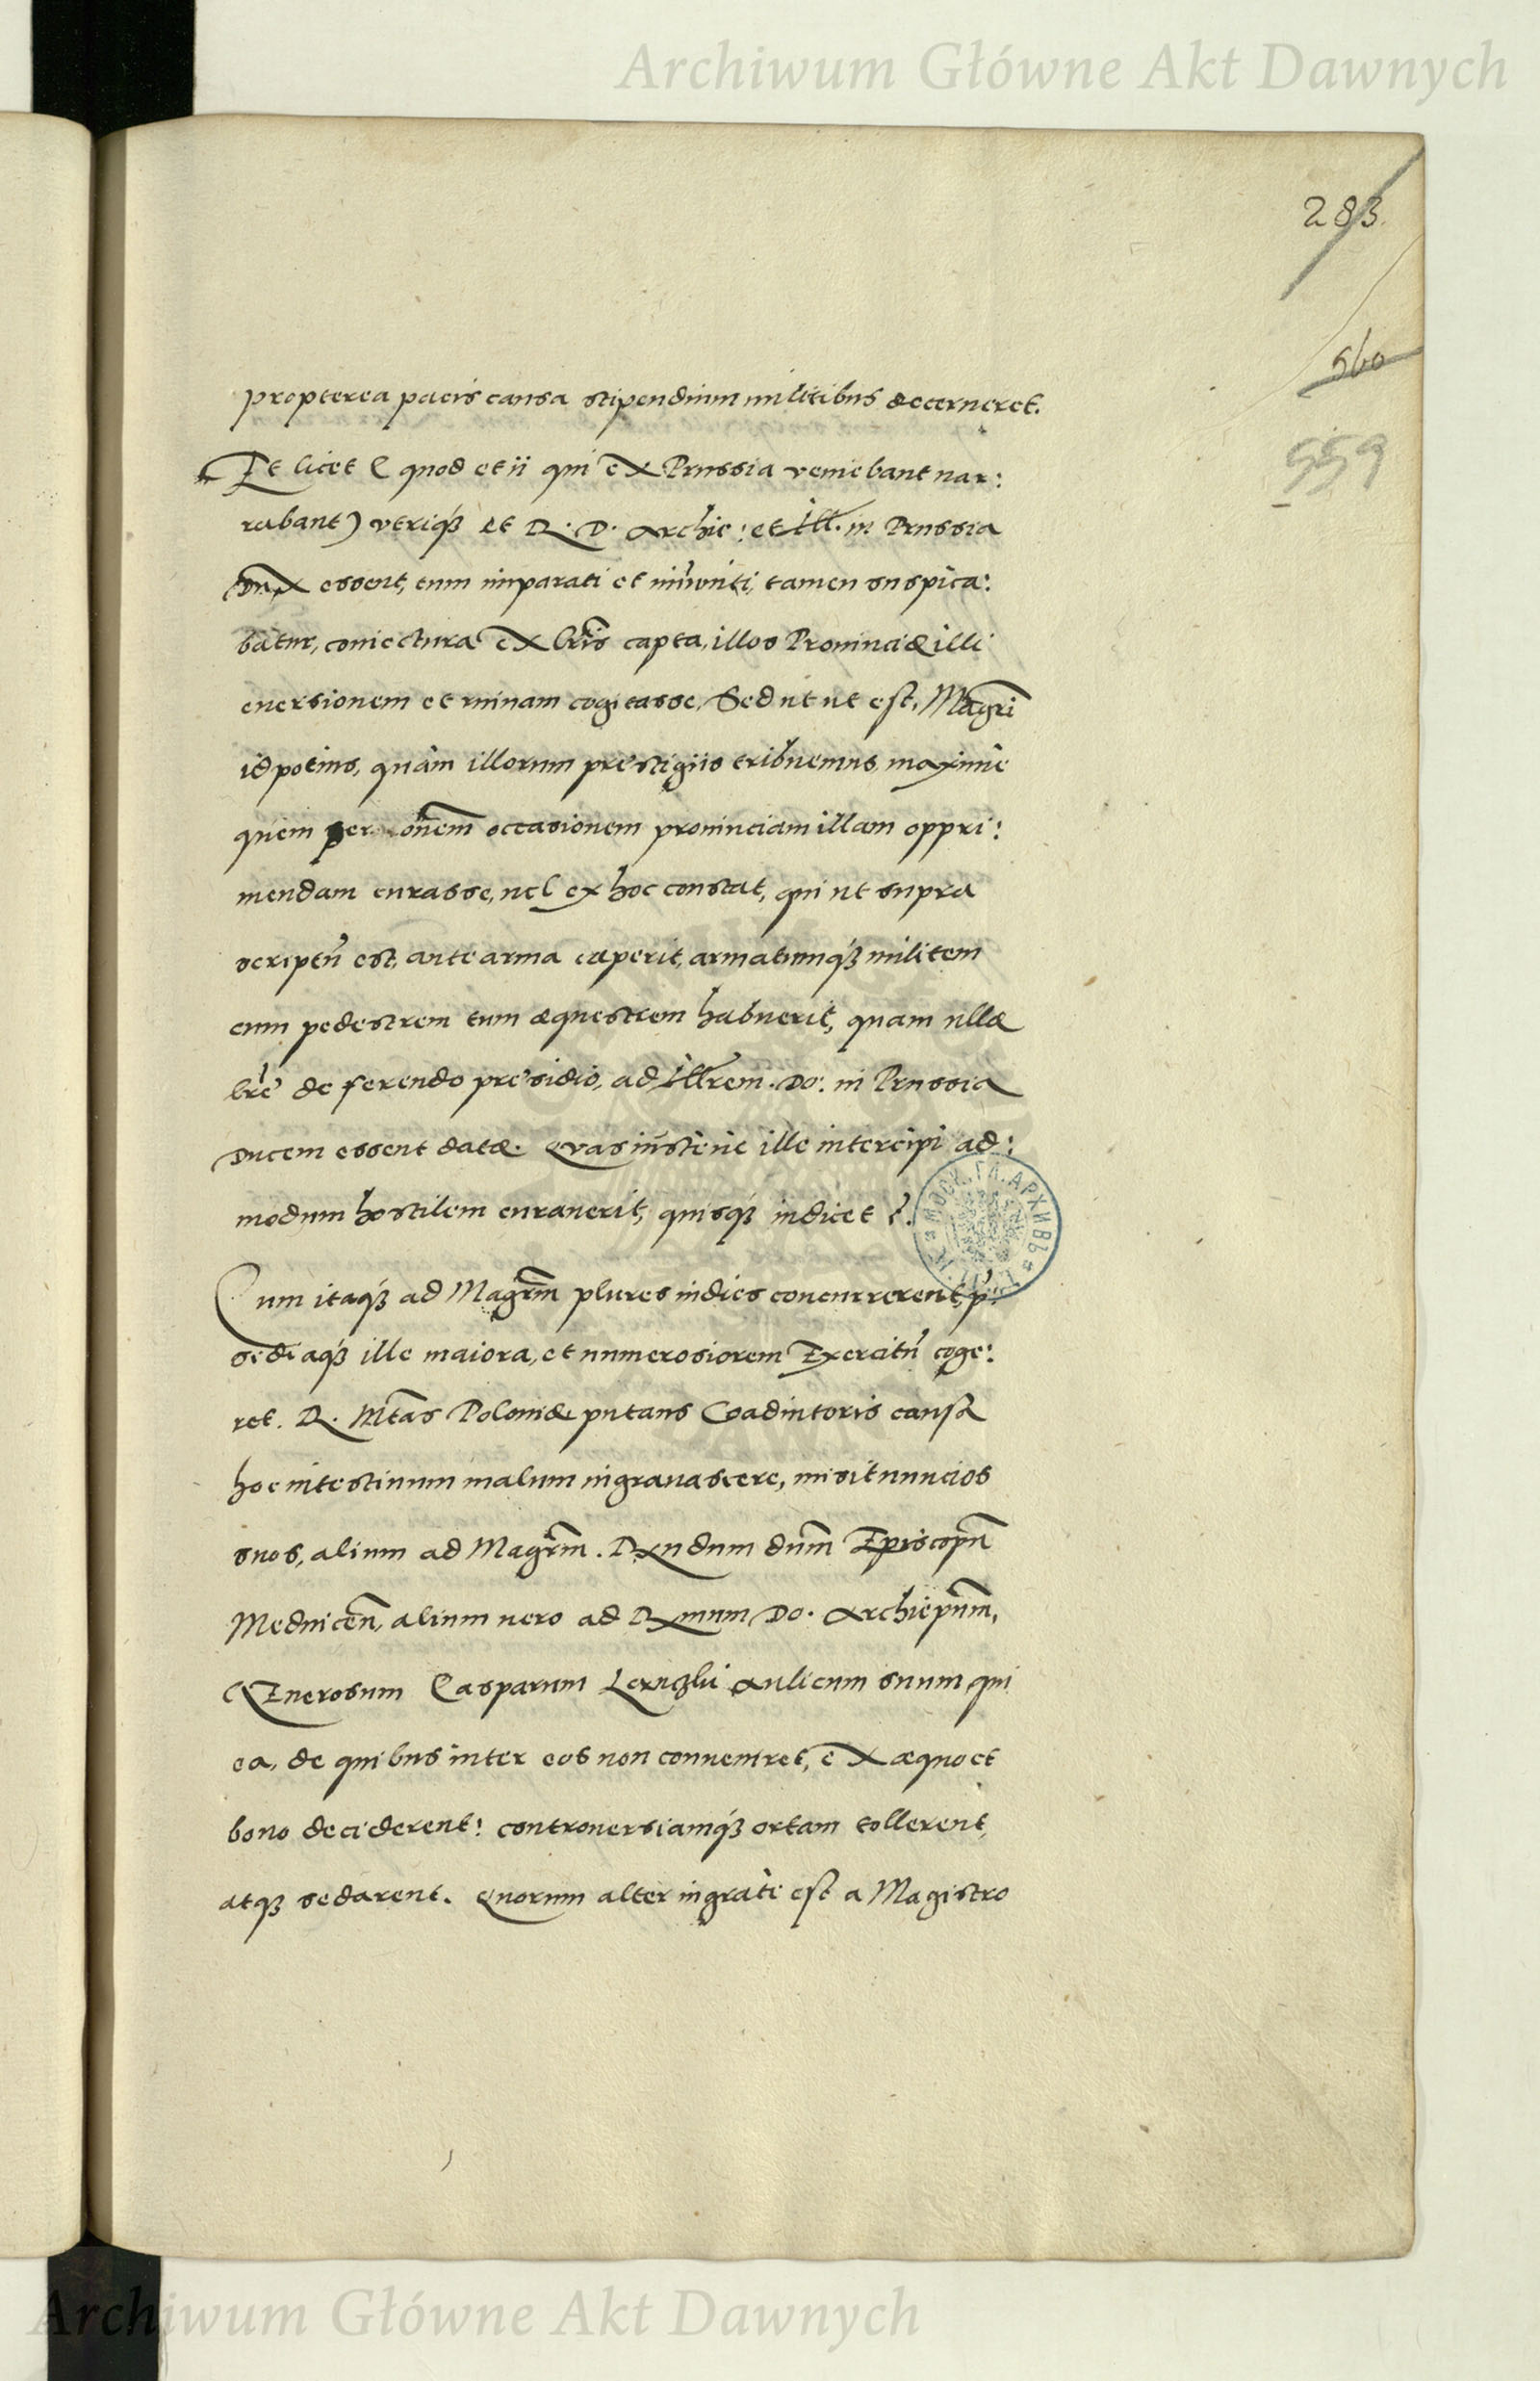 Archiwum Główne Akt Dawnych
283
560
559
propterea pacis causa stipendium militibus decerneret.
Et licet (quod et ii qui ex Prussia veniebant nar:
rabant) vtriqȝ et R. D. Archie: et Ill. in Prussia
Dux essent, tum imparati et inũniti, tamen suspica:
batur, coniectura ex lr̃is capta, illos Prouinciæ illi
euersionem et ruinam cogitasse. Sed ut ut est, Magr̃i
id potius, quàm illorum præstigiis tribuemus, maximè
quem per om̃em occasionem prouinciam illam oppri:
mendam curasse, uel ex hoc constat, qui ut supra
scriptũ est, ante arma ceperit, armatumqȝ militem
cum pedestrem tum æquestrem habuerit, quam ullæ
lr̃e de ferendo præsidio, ad Illrem. Do: in Prussia
Ducem essent datæ. Quas iustène ille intercipi ad:
modum hostilem curauerit, quisqȝ iudicet?
Cum itaqȝ ad Magr̃m plures indies concurrerent, p̃:
sidiaqȝ ille maiora, et numerosiorem Exercitũ coge:
ret. R. Mtas Poloniæ putans Coadiutoris causa
hoc intestinum malum ingrauascere, misit nuncios
suos, alium ad Magr̃m. Rxndum dñm Episcopũ
Mednicen̄, alium uero ad Rxmum Do. Archiep̃um,
Generosum Casparum aulicum suum qui
ea, de quibus inter eos non conueniret, ex æquo et
bono deciderent: controuersiamqȝ ortam tollerent,
atqȝ sedarent. Quorum alter ingratè est a Magistro
МОСК. ГЛ. АРХИВЪ
Archiwum Główne Akt Dawnych